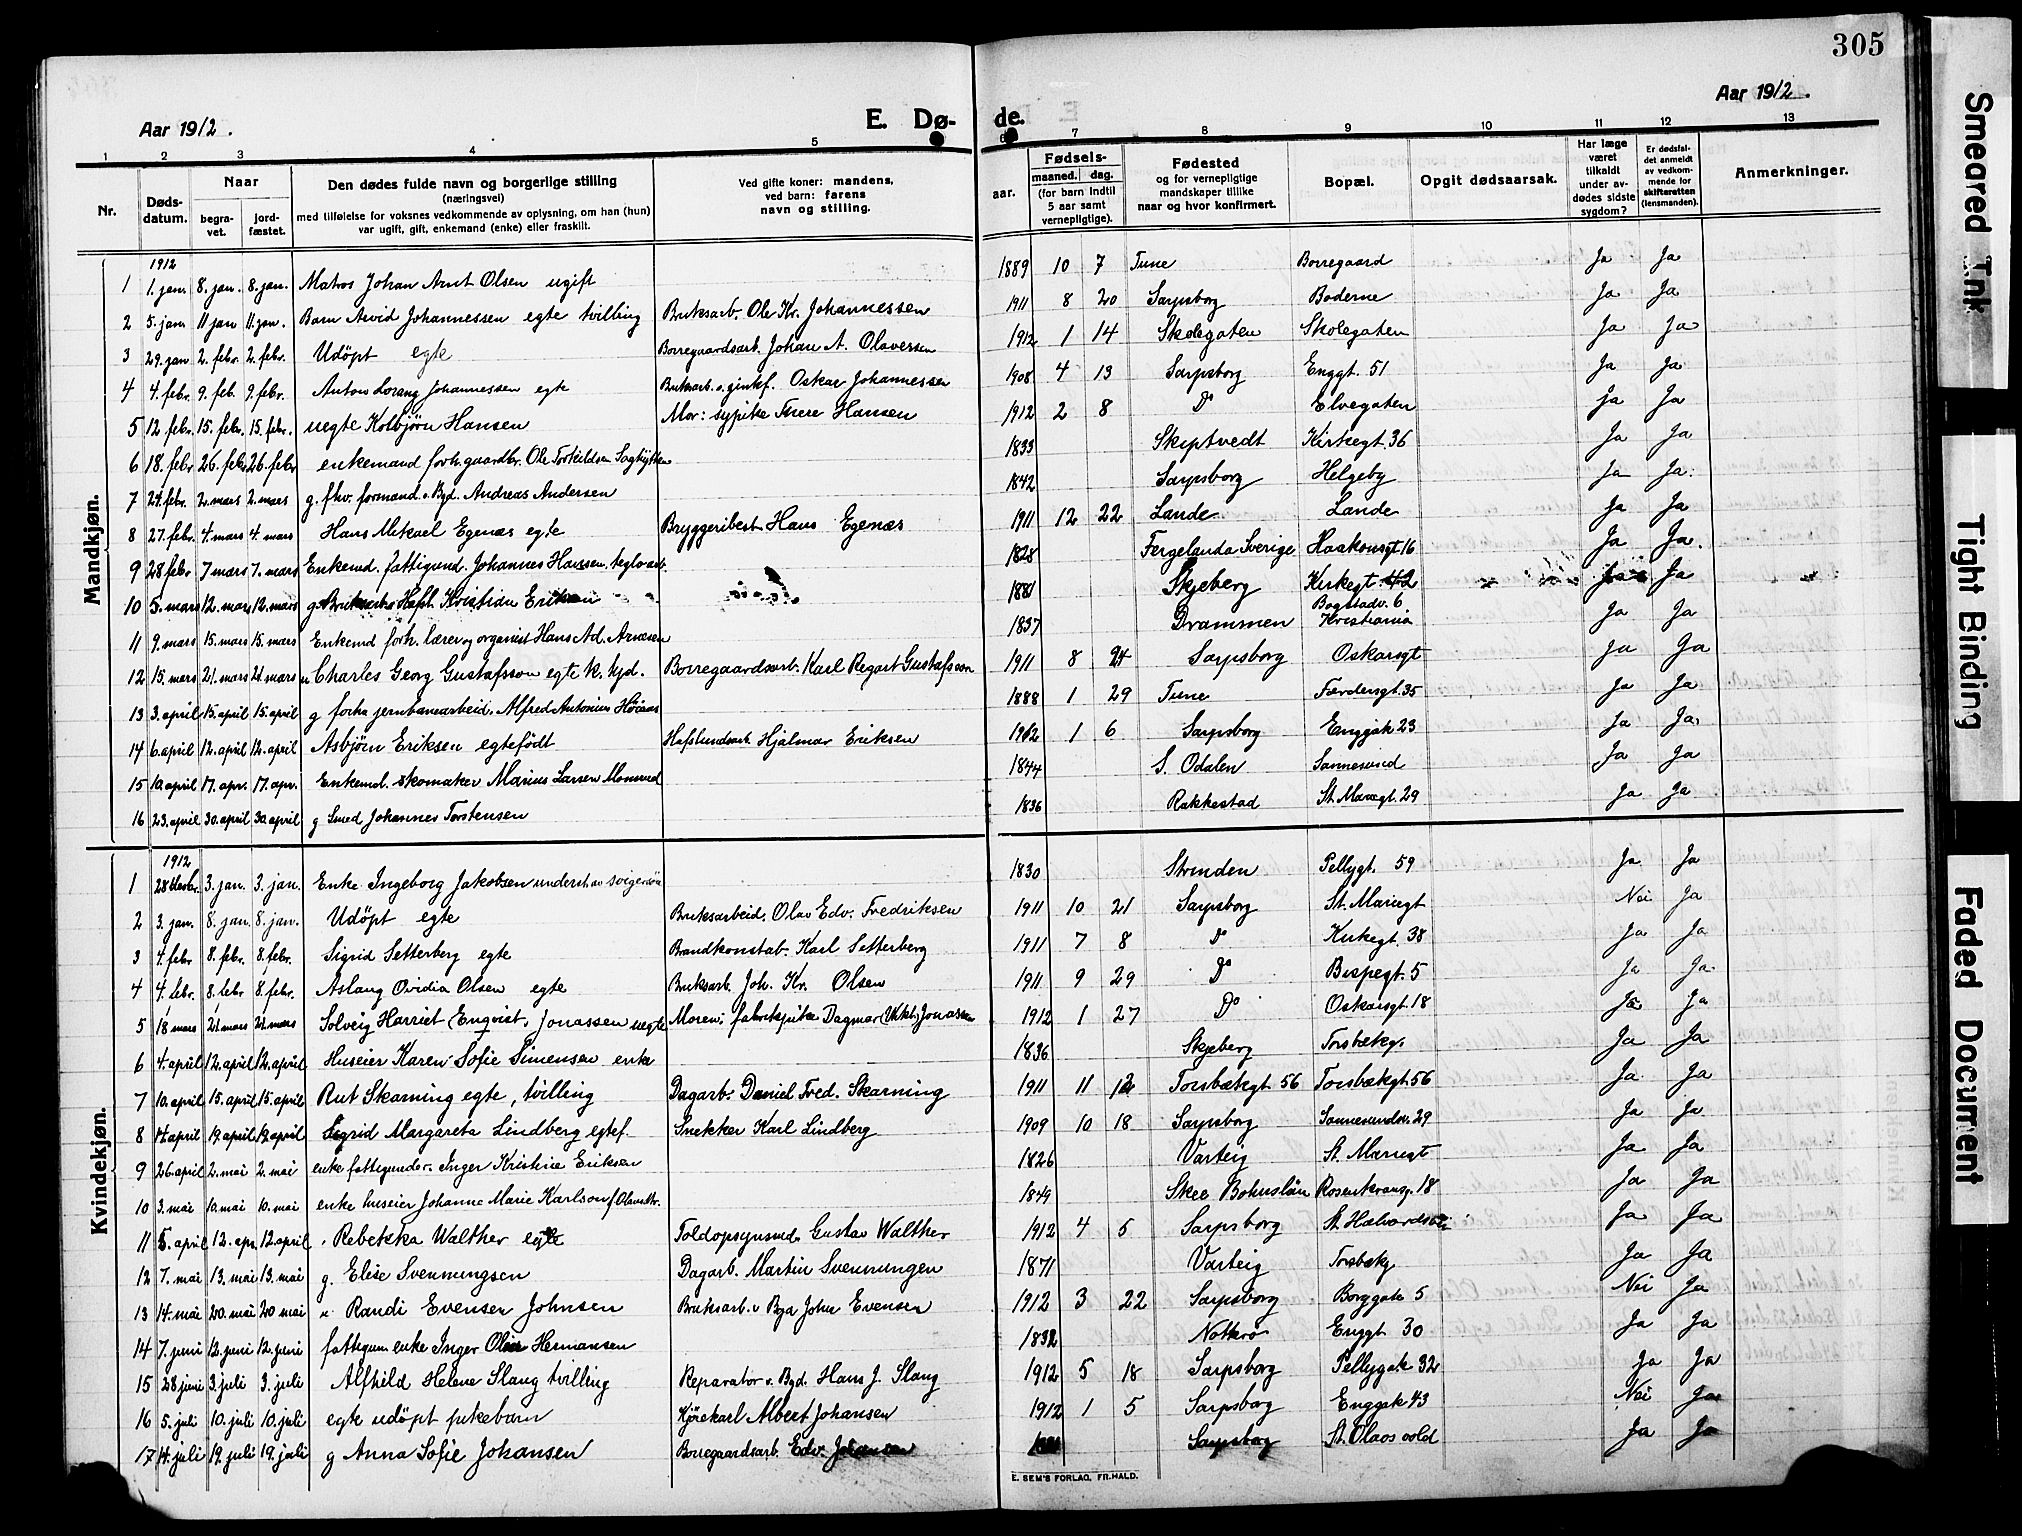 305
Aar 1912.
E. Dø-
de.
Aar 1912.
1 2 3 4 5 6 7 8 9 10 11 12 13
Nr.
Døds-
datum.
Naar
begra-
vet.
jord-
fæstet.
Den dødes fulde navn og borgerlige stilling
(næringsvei)
med tilføielse for voksnes vedkommende av oplysning, om han (hun)
var ugift, gift, enkemand (enke) eller fraskilt.
Ved gifte koner: mandens,
ved barn: farens
navn og stilling.
Fødsels-
aar.
maaned. dag.
(for barn indtil
5 aar samt
vernepligtige).
Fødested
og for vernepligtige
mandskaper tillike
naar og hvor konfirmert.
Bopæl.
Opgit dødsaarsak.
Har læge
været
tilkaldt
under av-
dødes sidste
sygdom?
Er dødsfal-
det anmeldt
av vedkom-
mende for
skifteretten
(lensmanden).
Anmerkninger.
Mandkjøn.
1912
1 1. jan. 8. jan. 8. jan. Matros Johan Arnt Olsen ugift 1889 10 7 Tune Borregaard Ja Ja
2 5. jan 11 jan 11. jan. Barn Arvid Johannessen egte tvilling Bruksarb. Ole Kr. Johannessen 1911 8 20 Sarpsborg Boderne Ja Ja
3 29. jan 2. febr. 2. febr. Udöpt egte Borregaardsarb. Johan A. Olaversen 1912 1 14 Skolegaten Skolegaten Ja Ja
4 4. febr. 9. feb. 9. febr. Anton Lorang Johannessen egte Bruksarb. Oskar Johannessen 1908 4 13 Sarpsborg Enggt. 51 Ja Ja
5 12 febr. 15. febr. 15. febr. uegte Kolbjørn Hansen Mor: sypike Hansen 1912 2 8 Do Elvegaten Ja Ja
6 18. febr 26. febr 26. febr enkemand forh. gaardbr. Ole Torkildsen 1833 Skiptvedt Kirkegt. 36 Ja Ja
7 24. febr. 2. mars 2. mars g. fhv. formand v. Byd. Andreas Andersen 1842 Sarpsborg Helgeby Ja Ja.
8 27. febr. 4. mars 4. mars Hans Mikael Egenæs egte Bryggeribest. Hans Egenæs 1911 12 22 Lande Lande Ja Ja
9 28 febr 7 mars 7. mars Enkemd. fattigund. Johannes Hansen, teglv.arb. 1828 Fergelanda Sverige Haakonsgt 16 Ja Ja.
10 5. mars 12. mars 12. mars g. Kristian Eriksen 1881 Skjeberg Kirkegt. 42 Ja Ja
11 9. mars 15. mars 15. mars Enkemd forh. lærer og organist Hans Ad. Arnesen 1837 Drammen Bogstadv. 6 Kristiania Ja Ja
12 15. mars 21. mars 21. mars Charles Georg Gustafsson egte k. kjd. Borregaardsarb. Karl Regart Gustafsson 1911 8 24 Sarpsborg Oskarsgt Ja Ja
13 3. april 15. april 15. april g forhv jernbanearbeid. Alfred Antonius 1888 1 29 Tune Færdersgt. 35 Ja Ja
14 6. april 12. april 12. april Asbjørn Eriksen egtefødt Hafslundsarb. Hjalmar Eriksen 1912 1 6 Sarpsborg Enggtk 23 Ja Ja.
15 10. april 17. apr. 17. apr. Enkemd. skomaker Marius Larsen 1844 S. Odalen Sannesund Ja Ja
16 23. april 30. april 30. april g Smed Johannes Torstensen 1836 Rakkestad St. Mariegt. 29 Ja Ja
Kvindekjøn.
1912
1 28 desbr. 3. jan. 3. jan. Enke Ingeborg Jakobsen underst. av svigersön 1830 Strinden Pellygt. 59 Ja Ja
2 3. jan. 8. jan 8. jan. Udöpt egte Bruksarbeid. Olav Edv. Fredriksen 1911 10 21 Sarpsborg St. Mariegt Nei Ja
3 4. febr 8. febr. 8. febr. Sigrid Setterberg egte Brandkonstab. Karl Setterberg 1911 7 8 Do Kirkegt. 38 Ja Ja
4 4. febr. 8. febr 8. febr. Aslaug Ovidia Olsen egte Bruksarb. Joh. Kr. Olsen 1911 9 29 Do Bispegt. 5 Ja Ja.
5 18 mars 21. mars 21. mars Solveig Harriet (Enqvist) Jonassen uegte Moren: fabrikpike Dagmar Jonassen 1912 1 27 Do Oskarsgt. 18 Ja Ja
6 4. april 12. april 12. april Huseier Karen Sofie Simensen enke 1836 Skjeberg Torsbækg. Ja Ja
7 10. april 15. april 15. april Rut Skarning egte, tvilling Dagarb. Daniel Fred. Skarning 1911 11 12 Torsbækgt 56 Torsbækgt. 56 Ja Ja
8 14. april 19. april 19. april Sigrid Margareta Lindberg egtef. Snekker Karl Lindberg 1909 10 18 Sarpsborg Sannesundsv. 29 Ja Ja
9 26. april 2. mai 2. mai enke fattigunder. Inger Kristine Eriksen 1826 Varteig St. Mariegt Ja Ja
10 3. mai 10. mai 10. mai enke huseier Johanne Marie Karlson f. Olausdtr. 1849 Skee Bohuslän Rosenkransg. 18 Ja Ja
11 5. april 12. apr. 12 april Rebekka Walther egte Toldopsynsmd. Gustav Walther 1912 4 5 Sarpsborg St. Halvardsvei Ja Ja
12 7. mai 13. mai 13. mai g. Elise Svenningsen Dagarb. Martin Svenningen 1871 Varteig Torsbækg Ja Ja
13 14. mai 20. mai 20 mai Randi Evensen Johnsen Bruksarb. v Byd John Evensen 1912 3 22 Sarpsborg Borggate 5 Nei Ja
14 7. juni 12. juni 12. juni fattigun. enke Inger Oline Hermansen 1832 Enggt 30 Ja Ja
15 28 juni 3. juli 3. juli Alfhild Helene Slang tvilling Reparatør v. Byd. Hans J. Slang 1912 5 18 Sarpsborg Pellygate 32 Ja Ja
16 5. juli 10. juli 10. juli egte udöpt pikebarn Kjørekarl Albert Johansen 1912 1 5 Sarpsborg Enggtk 43 Nei Ja
17 14. juli 19. juli 19. juli g Anna Sofie Johansen Borregaardsarb. Edv. Johansen Sarpsborg St. Olavs vold Ja Ja
E. SEM'S FORLAG, FR.HALD.
Smeared Ink
Tight Binding
Faded Document